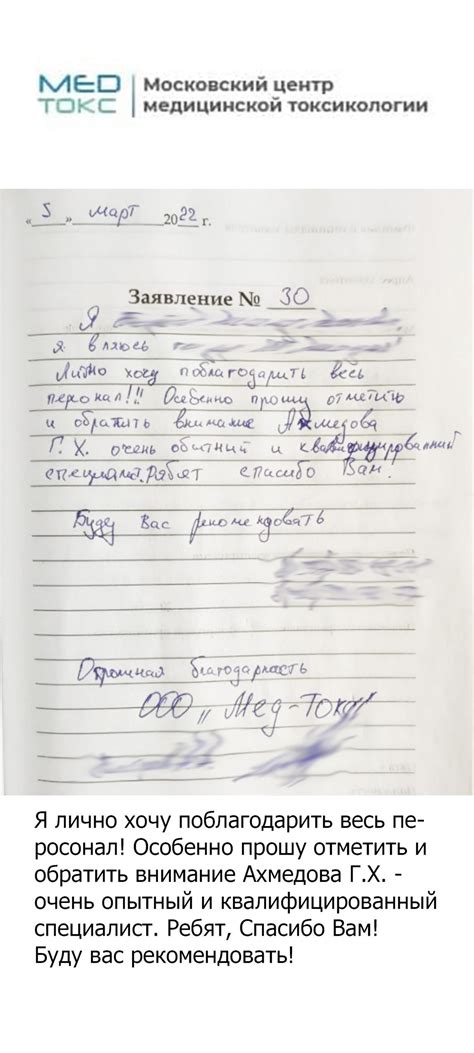 МЕД
ТОКС
Московский центр
медицинской токсикологии
«5» март 2022 г.
Заявление № 30
Я
я вляюсь
Лично хочу поблагодарить весь
персонал!!! Особенно прошу отметить
и обратить внимание Ахмедова
Г. Х. очень обытный и квалифицированный
специалист. Рябят спасибо Вам!
Буду Вас рекомендовать
Огромная благодарность
ООО „Мед-Токс"
Я лично хочу поблагодарить весь пе-
росонал! Особенно прошу отметить и
обратить внимание Ахмедова Г.Х. -
очень опытный и квалифицированный
специалист. Ребят, Спасибо Вам!
Буду вас рекомендовать!